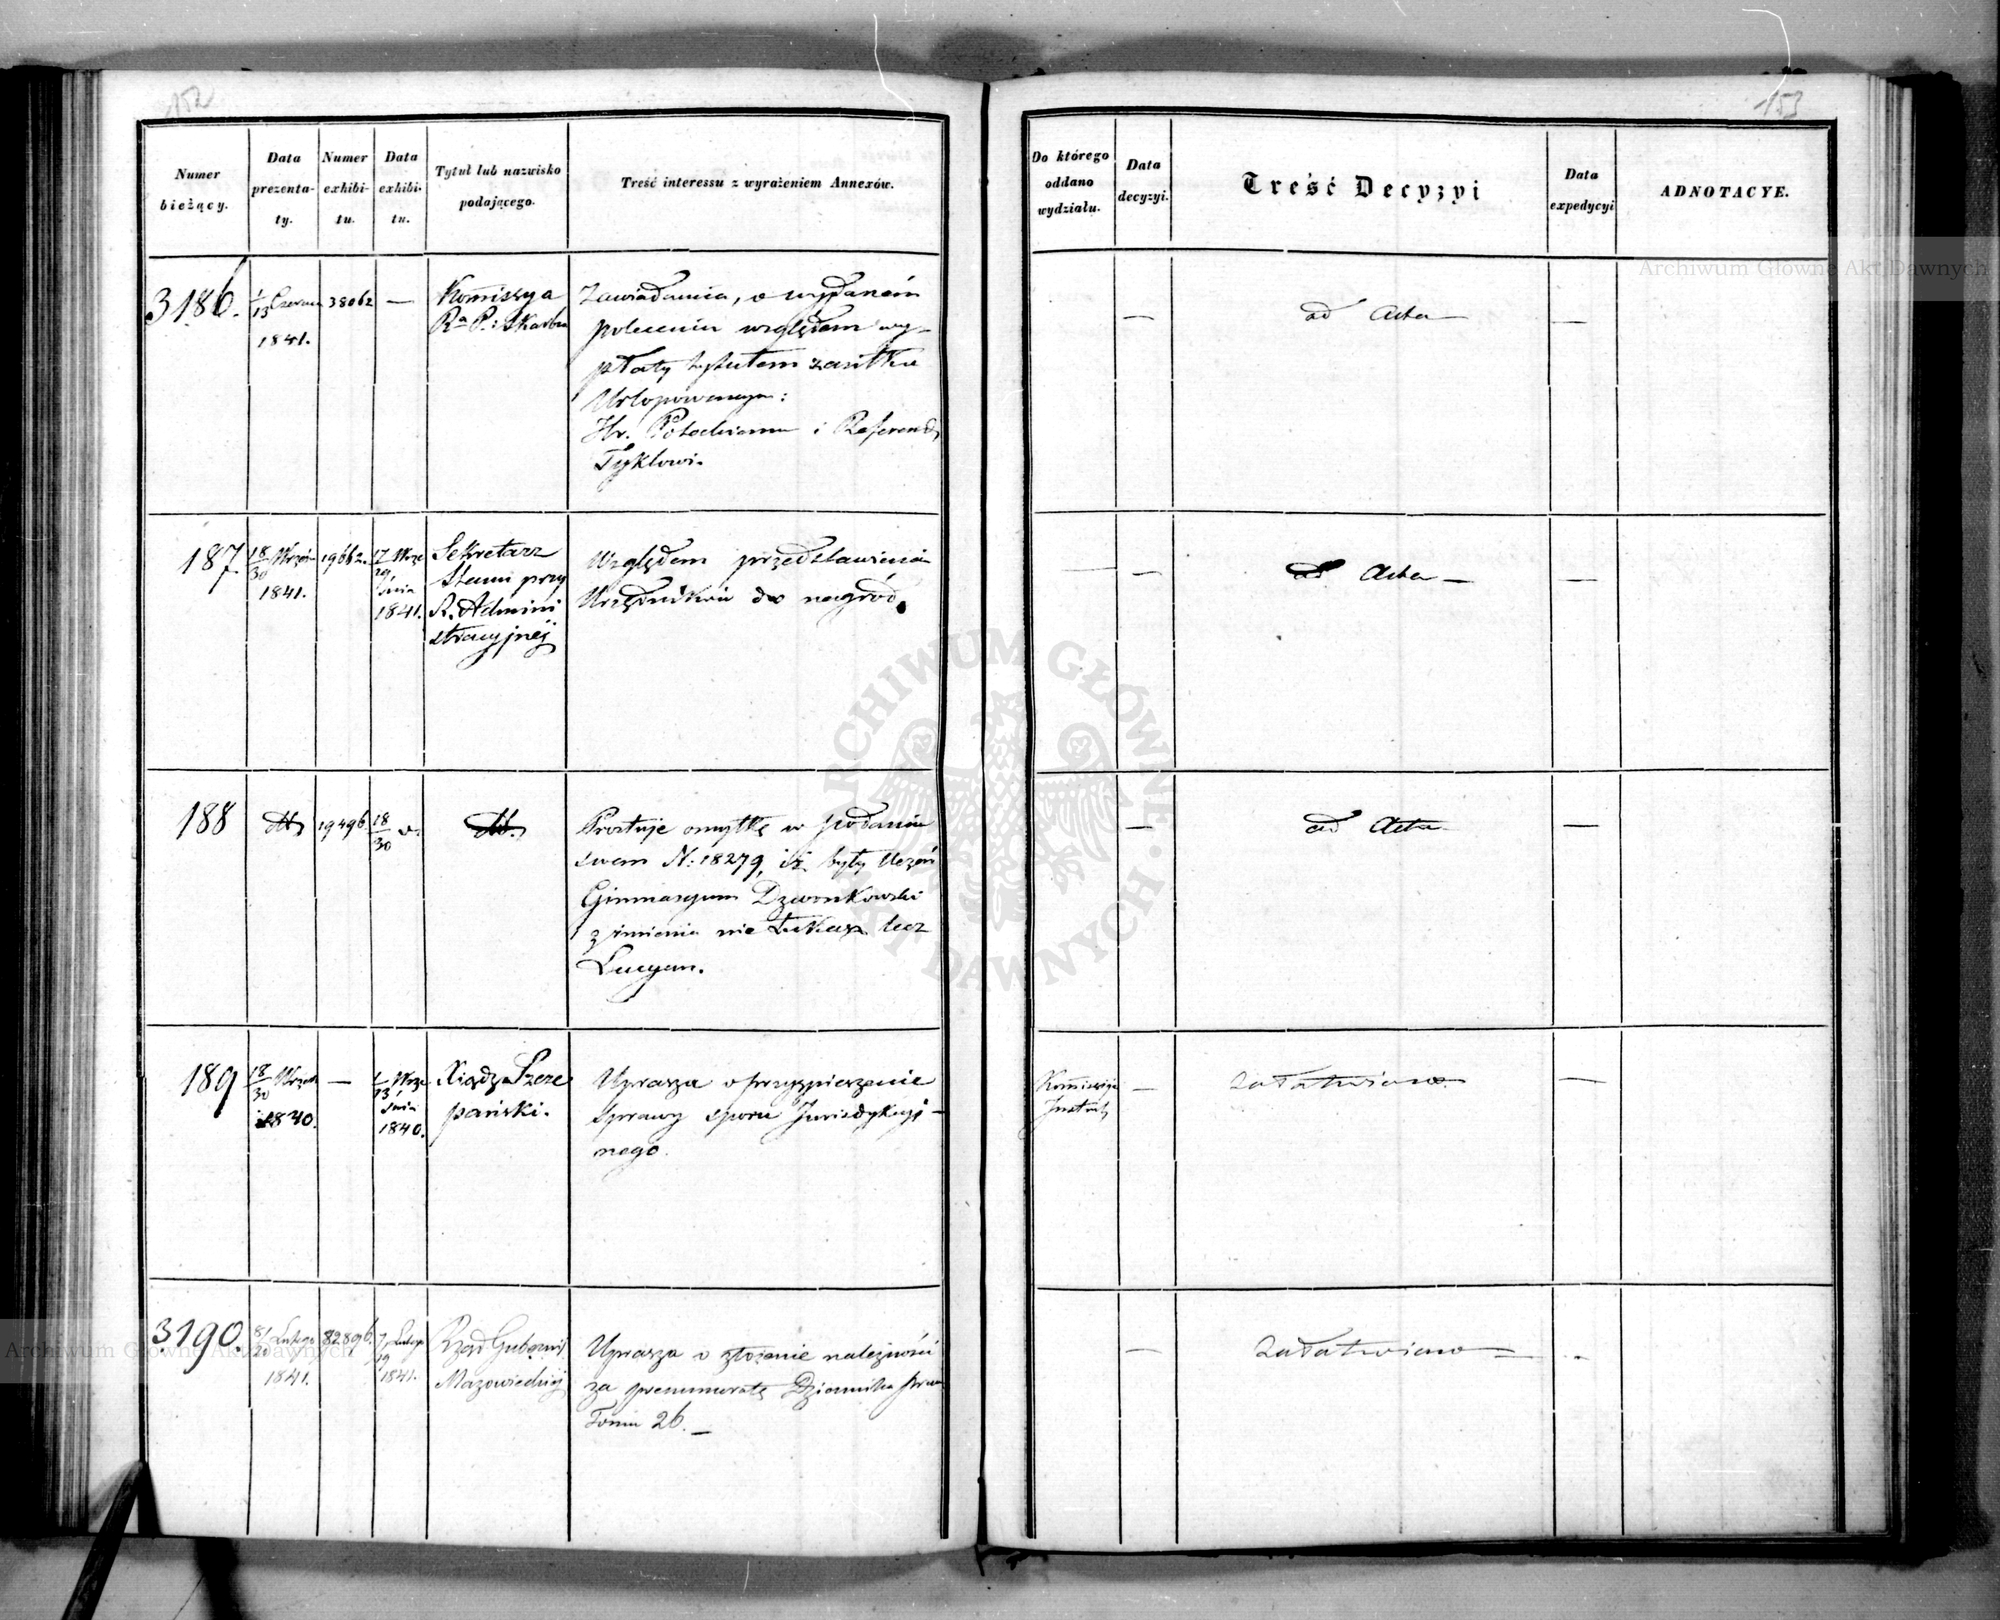 152
Numer bieżący.
Data prezenta-ty.
Numer exhibi-tu.
Data exhibi-tu.
Tytuł lub nazwisko podającego.
Treść interessu z wyrażeniem Annexów.
3186.
1/13 Czerwca
1841.
38062
—
Kom̄issya
Ra P. i Skarbu
Zawiadamia, o wydaném
poleceniu względem wy-
płaty tytułem zasiłku
Urlopowanym:
Hr. Potockiemu i Referend
Tyklowi.
187.
18/30 Wrześ
1841.
19662.
17/29 Wrze
śnia
1841.
Sekretarz
Stanu przy
R. Admini
stracyjnéj
Względem przedstawienia
Urzędników do nagród.
188
dtto
19496.
18/30 v.
dtto.
Prostuje omyłkę w podaniu
swem N: 18279, iż były Uczeń
Gimnasyum Dzwonkowski
z imienia nie Łukasz lecz
Lucyan.
189
18/30 Wrześ
1840.
—
1/13 Wrze
śnia
1840.
Xiądz Szcze
pański.
Uprasza o przyspieszenie
sprawy sporu Jurisdykcyj-
nego.
3190.
8/20 Lutego
1841.
82896.
7/19 Lutego
1841.
Rząd Gubern:
Mazowieckiej
Uprasza o złożenie należności
za prenumeratę Dziennika praw
Tomu 26. —
153
Do którego oddano wydziału.
Data decyzyi.
Treść Decyzyi
Data expedycyi
ADNOTACYE.
— ad Acta — —
— — ad Acta — —
— ad Acta —
Kom̄issya
Instrukt
— załatwiono —
— załatwiono —
Archiwum Główne Akt Dawnych
Archiwum Główne Akt Dawnych
ARCHIWUM GŁÓWNE AKT DAWNYCH